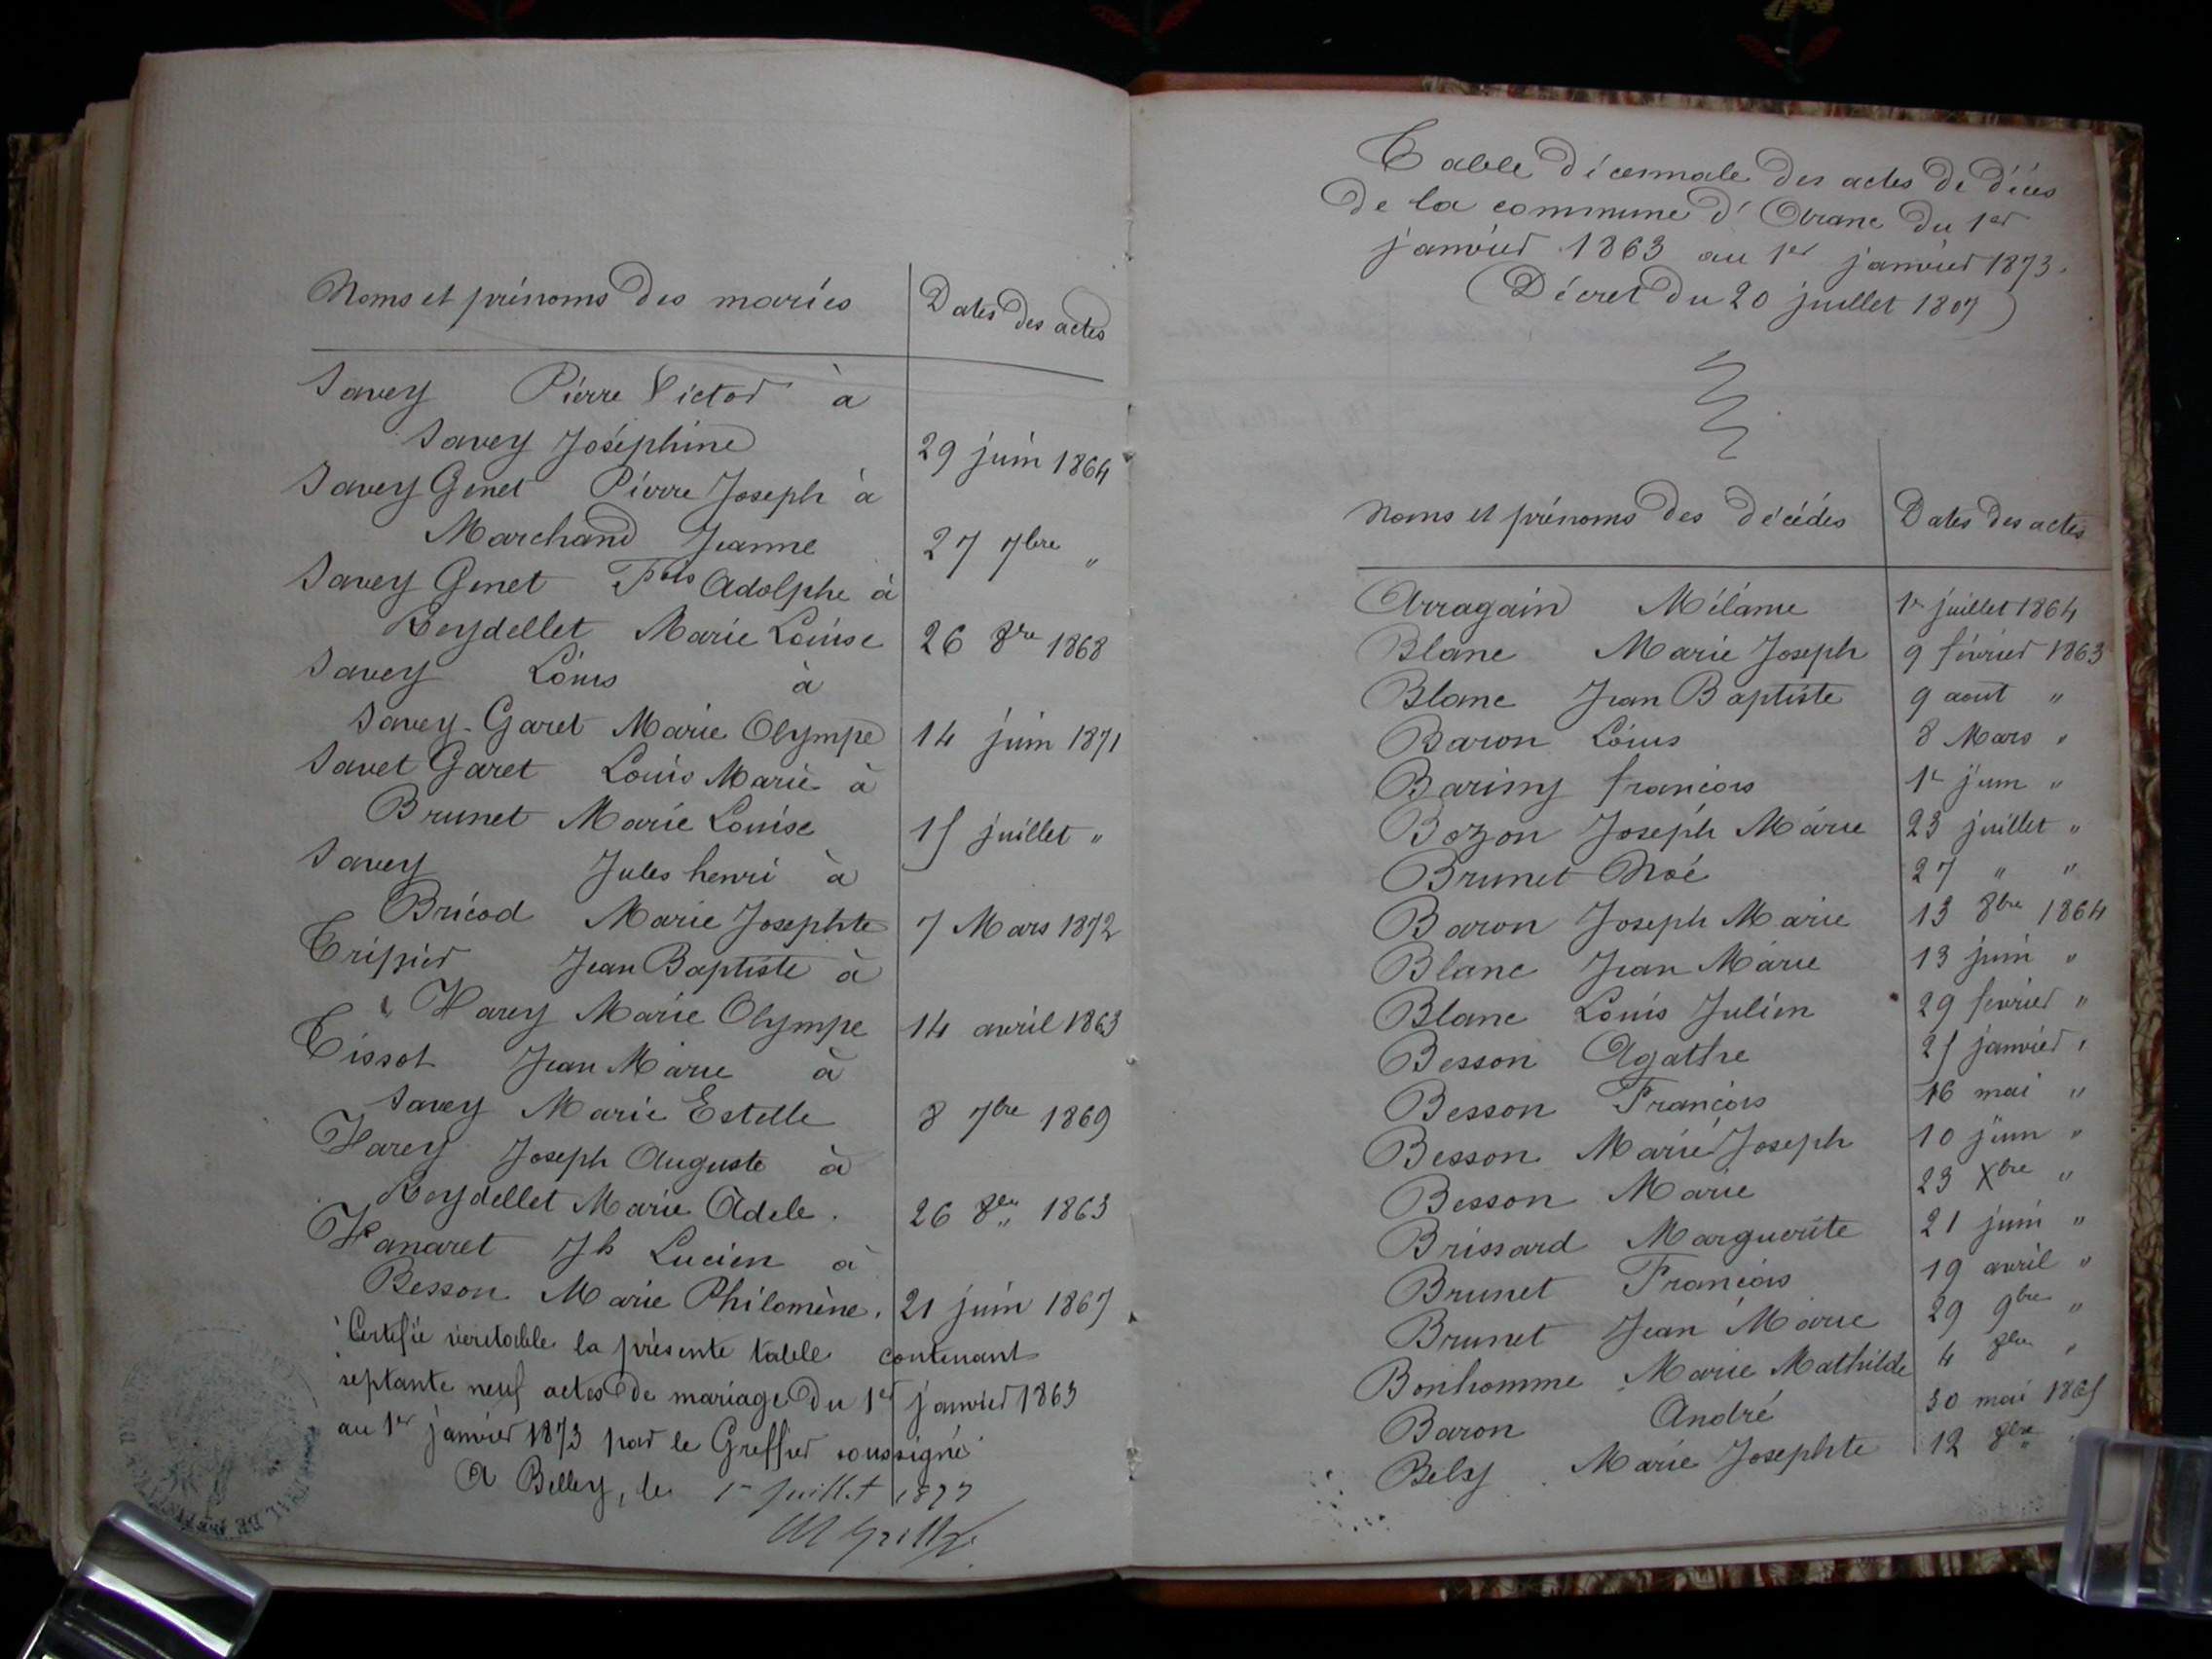 Noms et prénoms des mariés Dates des actes
Savey Pierre Victor à
Savey Joséphine 29 juin 1864
Savey Genet Pierre Joseph à
Marchand Jeanne 27 7bre "
Savey Genet Fois Adolphe à
Reydellet Marie Louise 26 8re 1868
Savey Louis à
Savey-Garet Marie Olympe 14 juin 1871
Savet Garet Louis Marie à
Brunet Marie Louise 15 juillet "
Savey Jules henri à
Bricod Marie Josephte 7 Mars 1872
Tripier Jean Baptiste à
Varey Marie Olympe 14 avril 1863
Tissot Jean Marie à
Savey Marie Estelle 8 7bre 1869
Varey Joseph Auguste à
Reydellet Marie Adele. 26 8bre 1863
Vanaret Jh Lucien à
Besson Marie Philomène. 21 juin 1867
Certifié veritable la présente table contenant
septante neuf actes de mariage du 1er janvier 1863
au 1er janvier 1873 par le Greffier soussigné
A Belley, le 1er juillet 1877
Table décennale des actes de décès
de la commune d'Arane du 1er
janvier 1863 au 1er janvier 1873.
(Décret du 20 juillet 1807)
Noms et prénoms des décédés Dates des actes
Arragain Mélanie 1er juillet 1864
Blanc Marie Joseph 9 février 1863
Blanc Jean Baptiste 9 aout "
Baron Louis 8 Mars "
Barimy francois 1er juin "
Bozon Joseph Marie 23 juillet "
Brunet Noé 27 " "
Baron Joseph Marie 13 8bre 1864
Blanc Jean Marie 13 juin "
Blanc Louis Julien 29 fevrier "
Besson Agathe 25 janvier "
Besson Francois 16 mai "
Besson Marie Joseph 10 juin "
Besson Marie 23 Xbre "
Brissard Marguerite 21 juin "
Brunet Francois 19 avril "
Brunet Jean Marie 29 9bre "
Bonhomme Marie Mathilde 4 8bre "
Baron André 30 mai 1865
Bely Marie Josephte 12 8bre "